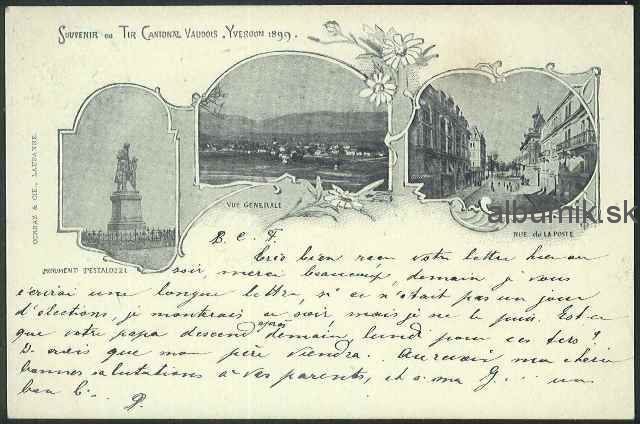 SOUVENIR DU TIR CANTONAL VAUDOIS . YVERDON 1899 .
CORBAZ & CIE., LAUSANNE.
VUE GÉNÉRALE
RUE de LA POSTE
MONUMENT PESTALOZZI
albumik.sk
B. C. F.
bien reçu votre lettre hier au
soir, merci beaucoup, demain je vous
écrirai une longue lettre, si ce n'était pas un jour
d'élections, je monterais ce soir mais je ne le puis. Est-ce
que votre papa descend après demain lundi pour ces fers?
Je sais que mon père viendra. Au revoir ma chérie
bonnes salutations à vos parents, et à ma G... un
bon b..
P.